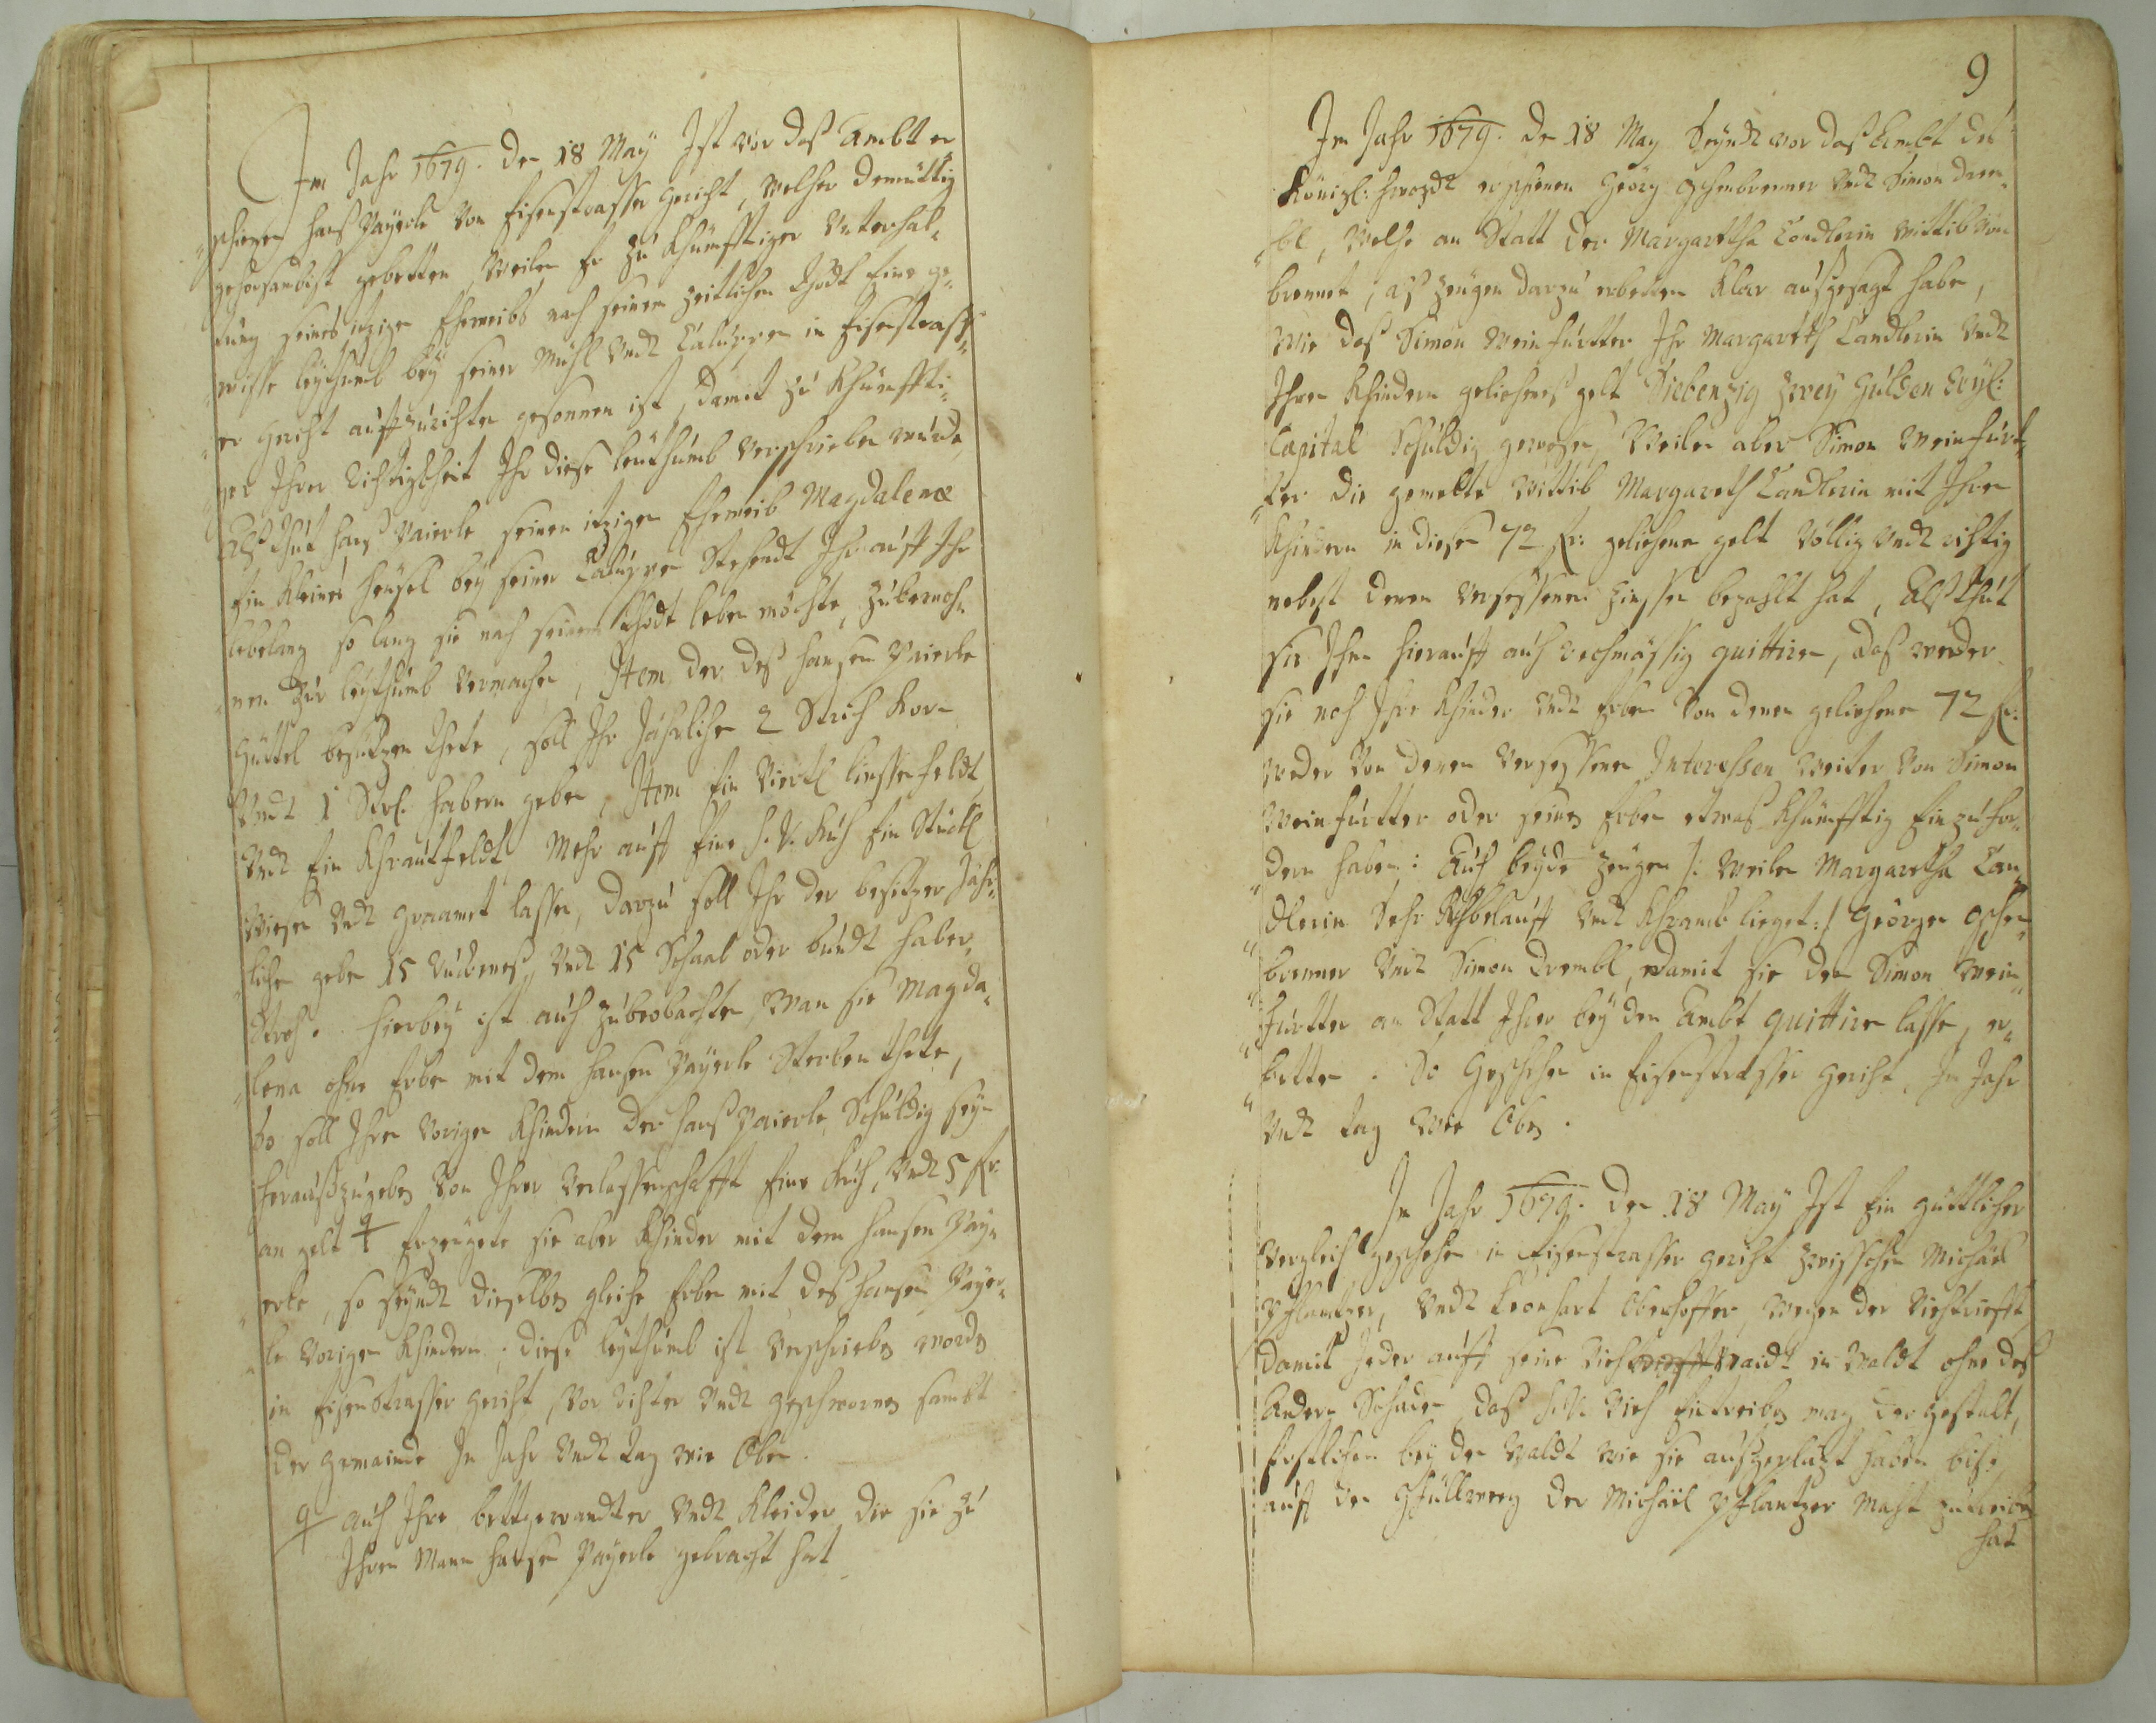 Im Jahr 1679. den 18 May Ist vor daß Ambt er¬
schienen Hanß Payerle von Eisenstrasser Gericht, welcher demüttig
gehorsambist gebetten, Weilen Er zu Khünfftiger Unterhal¬
tung seines itzigen Eheweibs nach seinem zeitlichen Thodt Eine ge¬
wisse leÿthumb beÿ seiner Mühl Undt Caluppen in Eisenstrass¬
er Gericht auffzurichten gesonnen ist, damit zu Khünffti¬
ger Ihrer Richtigkheit Ihr diese leuthumb verschrieben würde,
Alß thut Hanß Paierle seinem itzigen Eheweib Magdalenæ
Ein Kleines Heußel beÿ seiner Caluppen Stehendt Ihr auff Ihr
lebelang so lang sie nach seinem Thodt leben möchte, zubewoh¬
nen zur leÿthumb vermachen, Item der deß Hansen Paierle
Güttel besitzen thete, soll Ihr Jährlichen 2 Strich Korn
Undt 1 Strl. Habern geben, Item Ein Viertl linssenfeldt,
Undt Ein Khrautfeldt, Mehr auff Eine S: V. Kuh Ein Stückl
Wiesen Undt Graamet lassen, darzu soll Ihr der besitzer Jähr¬
lichen geben 15 Undt 15 Schaab oder bundt Haber¬
Stroh. Hierbeÿ ist auch zubeobachten, Wan sie Magda¬
lena ohne Erben mit dem Hansen Payerle Sterben thete,
So soll Ihren Vorigen Khindern der Hanß Paierle Schuldig seÿn
herauszugeben Von Ihrer Verlassenschafft Eine Kuh, Undt 5 fl.
an gelt Erzeugete sie aber Khinder mit dem Hansen Paÿ¬
erle, so seÿndt dieselben gleiche Erben mit deß Hansen Payer¬
le Vorigen Khindern; diese leÿthumb ist Verschrieben worden
in Eisenstrasser Gericht, Vor Richter Undt geschwornen sambt
der gemainde Im Jahr Undt tag wie Oben.
auch Ihre bettgewandter Undt Kleider die sie zu
Ihren Mann Hansen Payerle gebracht hat
9
Im Jahr 1679. den 18 May Seÿndt vor daß Ambt der
Königl: Hwozdt erschienen Georg Aschenbrenner Undt Simon Drem¬
bl, Welche an Statt der Margaretha Candlerin Wittib Von
brennet, alß Zeugen darzu erbetten Klar außgesagt haben,
Wie daß Simon Weinfurtter Ihr Margareth Candlerin Undt
Ihren Khindern geliehenes gelt Siebenzig zweÿ Gulden
Capital Schuldig gewesen, Weilen aber Simon Weinfurt¬
ter die gemelte Wittib Margareth Candlerin mit Ihren
Khindern in diesen 72 fl: geliehene gelt Völlig Undt richtig
nebst denen Versessenen Zinssen bezahlt hat, Alß thut
sie Ihm hierauff auch rechmässig quittiren, daß weder
sie noch Ihre Khinder Undt Erben Von denen geliehenen 72 fl:
weder Von denen Versessenen Interessen Weiter Von Simon
Weinfurtter oder seinen Erben etwaß Khünfftig Einzufor¬
dern haben: Auch beÿde Zeugen /: Weilen Margaretha Can¬
dlerin Sehr Ybelauff Undt Khranckh lieget :/ Georgen Aschen¬
brenner Undt Simon Drembl, damit sie den Simon Wein¬
furtter an Statt Ihrer beÿ dem Ambt quittiren lasse, er¬
betten. So Geschehen in Eisenstrasser Gericht, Im Jahr
Undt tag Wie Oben.
Im Jahr 1679. den 18 May Ist Ein güttlicher
Vergleich geschehen in Eisenstrasser Gericht zwischen Michäel
Pflantzer, Undt Leonhart Oberhoffer, Wegen der Viehtrifft,
damit Jeder auff seine Viehwaidt in Waldt ohne deß
Andern Schaden, daß S: V. Vieh Eintreiben mag der gestalt,
Erstlichen beÿ den Waldt wie sie außgeplazt haben biß
auff den Gfüllweeg der Michäel Pflantzer Macht zutreiben
hat